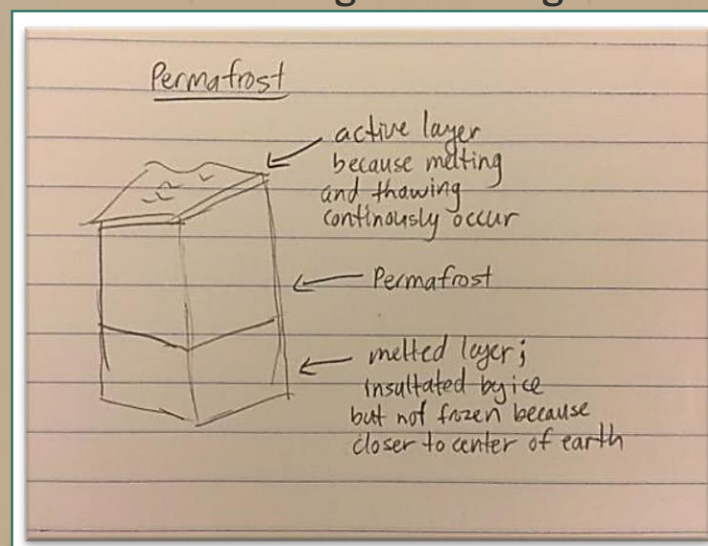 Permafrost
active layer
because melting
and thawing
continously occur
Permafrost
melted layer;
insultated by ice
but not frozen because
closer to center of earth